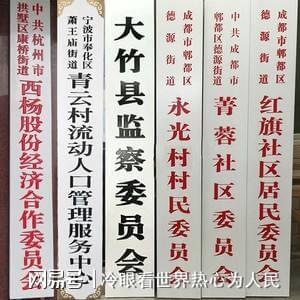 中共杭州市
拱墅区康桥街道
西杨股份经济合作委员会
宁波市奉化区
萧王庙街道
青云村流动人口管理服务中
大竹县监察委员会
成都市郫都区
德源街道
永光村村民委员
中共成都市
郫都区德源街道
菁蓉社区委员
成都市郫都区
德源街道
红旗社区居民委员
网易号 | 冷眼看世界热心为人民